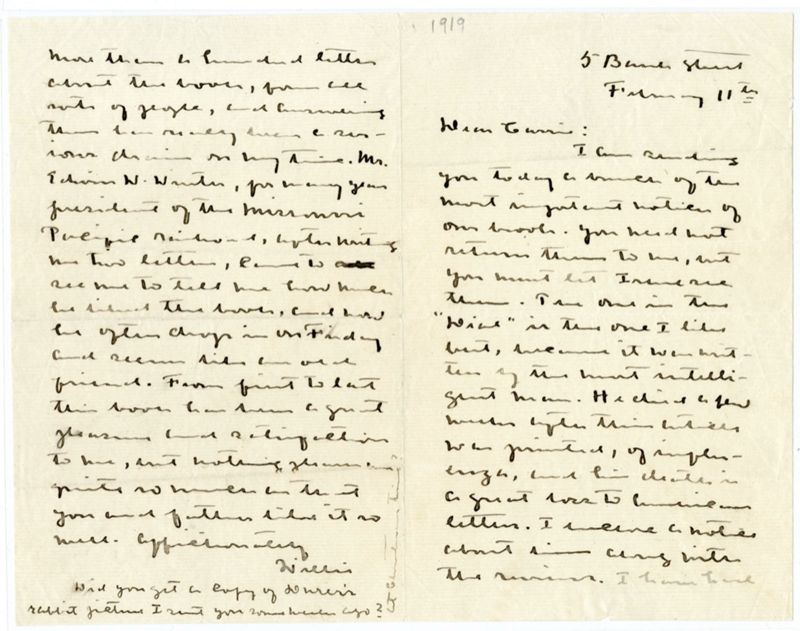 1919
5 Bank Street
February 11th
Dear Carrie:
I am sending
you today a bunch of the
most important notices of
our book. You need not
return them to me, but
you must let Irene see
them. The one in the
"Dial" is the one I like
best, because it was writ-
ten by the most intelli-
gent man. He died a few
weeks after this article
was printed, of influ-
enza, and his death is
a great loss to American
letters. I enclose a notice
about him along with
the reviews. I have had
more than a hundred letters
about the book, from all
sorts of people, and answering
them has really been a ser-
ious drain on my time. Mr.
Edwin W. Winter, for many years
president of the Missouri
Pacific railroad, after writing
me two letters, came to
see me to tell me how much
he liked the book, and now
he often drops in on Friday
and seems like an old
friend. From first to last
this book has been a great
pleasure and satisfaction
to me, but nothing pleases me
quite so much as that
you and father like it so
well. Affectionately
Willie
Did you get a copy of Dürer's
rabbit picture I sent you some weeks ago?